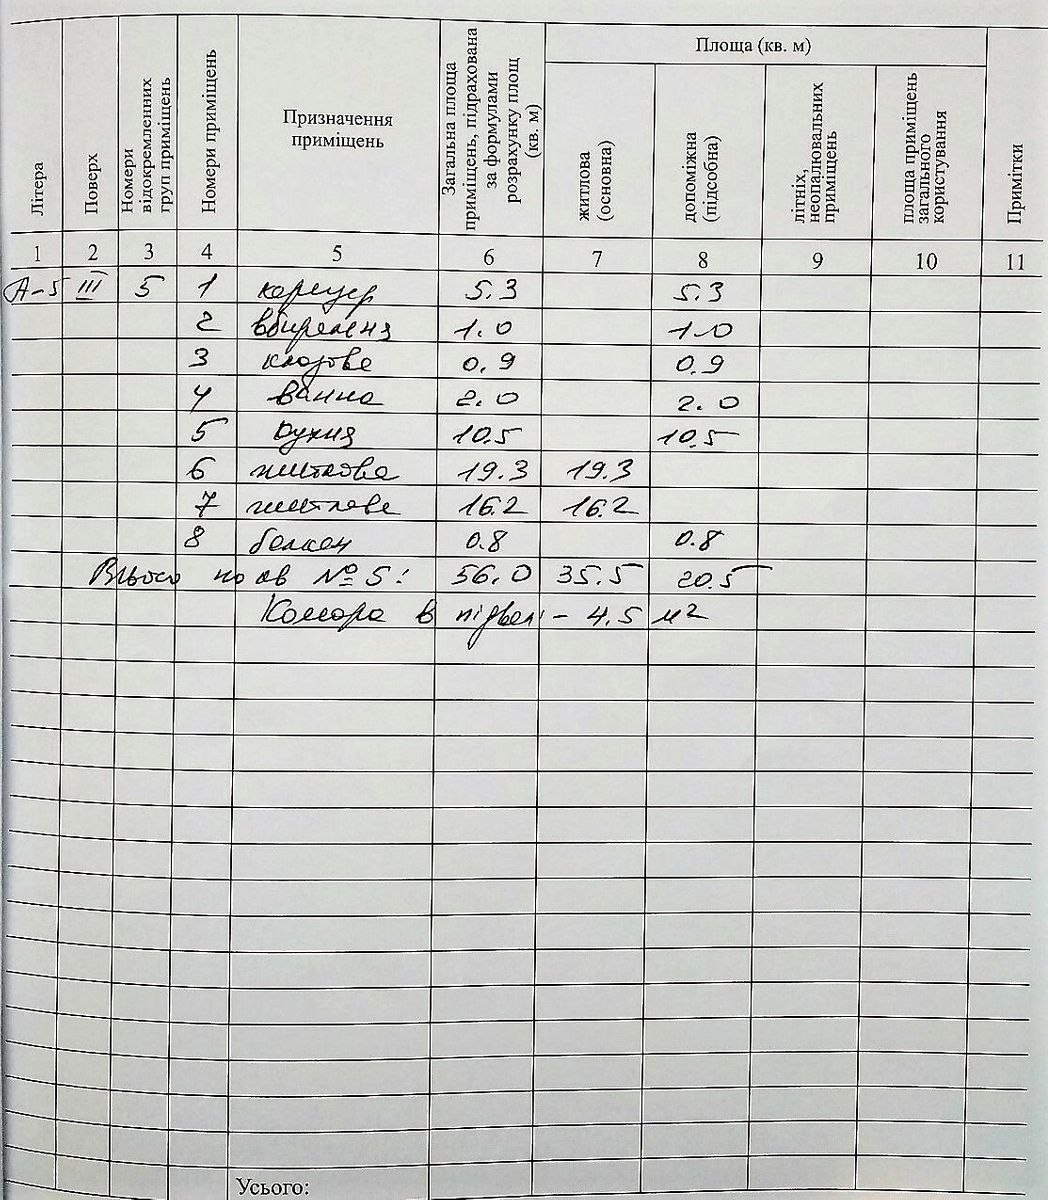 Площа (кв. м)
Літера
Поверх
Номери відокремленних груп приміщень
Номери приміщень
Призначення приміщень
Загальна площа приміщень, підрахована за формулами розрахунку площ (кв. м)
житлова (основна)
допоміжна (підсобна)
літніх, неопалювальних приміщень
площа приміщень загального користування
Примітки
1 2 3 4 5 6 7 8 9 10 11
А-5 III 5 1 коридор 5.3 5.3
2 вбиральня 1.0 1.0
3 кладова 0.9 0.9
4 ванна 2.0 2.0
5 кухня 10.5 10.5
6 житлова 19.3 19.3
7 житлова 16.2 16.2
8 балкон 0.8 0.8
Всього по кв №5: 56.0 35.5 20.5
Комора в підвалі - 4.5 м²
Усього: